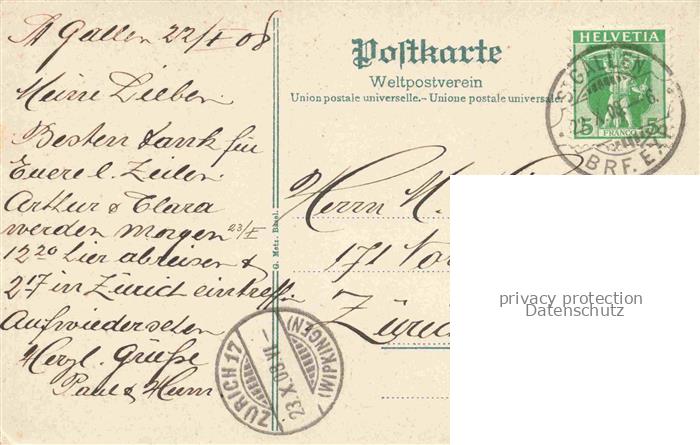 St Gallen 22/X 08
Meine Lieben
Besten Dank für
Euere l. Zeilen
Arthur & Clara
werden morgen 23/X
12²⁰ hier abreisen &
2¹⁷ in Zürich eintreffen
Aufwiedersehen
Herzl. Grüße
Paul &
G. Metz, Basel.
Postkarte
Weltpostverein
Union postale universelle. – Unione postale universale
HELVETIA
5 5
FRANCO
ST GALLEN
BRF. EX
Herrn M.
171
Zürich
privacy protection
Datenschutz
ZÜRICH 17
23.X.08.VI-
(WIPKINGEN)